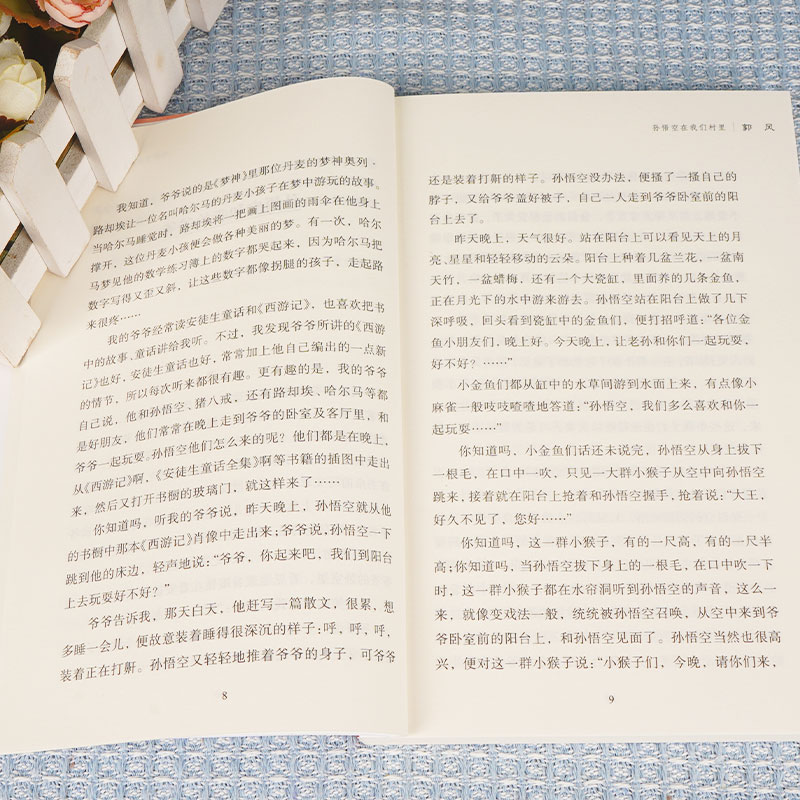 我知道，爷爷说的是《梦神》里那位丹麦的梦神奥列·
路却埃让一位名叫哈尔马的丹麦小孩子在梦中游玩的故事。
当哈尔马睡觉时，路却埃将一把画上图画的雨伞在他身上
撑开，这位丹麦小孩便会做各种美丽的梦。有一次，哈尔
马梦见他的数学练习簿上的数字都哭起来，因为哈尔马把
数字写得又歪又斜，让这些数字都像拐腿的孩子，走起路
来很疼……
我的爷爷经常读安徒生童话和《西游记》，也喜欢把书
中的故事、童话讲给我听。不过，我发现爷爷所讲的《西游
记》也好，安徒生童话也好，常常加上他自己编出的一点新
的情节，所以每次听来都很有趣。更有趣的是，我的爷爷
自己说，他和孙悟空、猪八戒，还有路却埃、哈尔马等都
是好朋友，他们常常在晚上走到爷爷的卧室及客厅里，和
爷爷一起玩耍。孙悟空他们怎么来的呢？他们都是在晚上，
从《西游记》啊，《安徒生童话全集》啊等书籍的插图中走出
来，然后又打开书橱的玻璃门，就这样来了……
你知道吗，听我的爷爷说，昨天晚上，孙悟空就从他
的书橱中那本《西游记》肖像中走出来；爷爷说，孙悟空一下
跳到他的床边，轻声地说：“爷爷，你起来吧，我们到阳台
上去玩耍好不好？”
爷爷告诉我，那天白天，他赶写一篇散文，很累，想
多睡一会儿，便故意装着睡得很深沉的样子：呼，呼，呼，
装着正在打鼾。孙悟空又轻轻地推着爷爷的身子，可爷爷
8
孙悟空在我们村里 | 郭 风
还是装着打鼾的样子。孙悟空没办法，便搔了搔自己的
脖子，又给爷爷盖好被子，自己一人走到爷爷卧室前的阳
台上去了。
昨天晚上，天气很好。站在阳台上可以看见天上的月
亮、星星和轻轻移动的云朵。阳台上种着几盆兰花，一盆南
天竹，一盆蜡梅，还有一个大瓷缸，里面养的几条金鱼，
正在月光下的水中游来游去。孙悟空站在阳台上做了几下
深呼吸，回头看到瓷缸中的金鱼们，便打招呼道：“各位金
鱼小朋友们，晚上好。今天晚上，让老孙和你们一起玩耍，
好不好？……”
小金鱼们都从缸中的水草间游到水面上来，有点像小
麻雀一般吱吱喳喳地答道：“孙悟空，我们多么喜欢和你一
起玩耍……”
你知道吗，小金鱼们话还未说完，孙悟空从身上拔下
一根毛，在口中一吹，只见一大群小猴子从空中向孙悟空
跳来，接着就在阳台上抢着和孙悟空握手，抢着说：“大王，
好久不见了，您好……”
你知道吗，这一群小猴子，有的一尺高，有的一尺半
高；你知道吗，当孙悟空拔下身上的一根毛，在口中吹一下
时，这一群小猴子都在水帘洞听到孙悟空的声音，这么一
来，就像变戏法一般，统统被孙悟空召唤，从空中来到爷
爷卧室前的阳台上，和孙悟空见面了。孙悟空当然也很高
兴，便对这一群小猴子说：“小猴子们，今晚，请你们来，
9